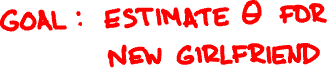 GOAL: ESTIMATE θ FOR
NEW GIRLFRIEND